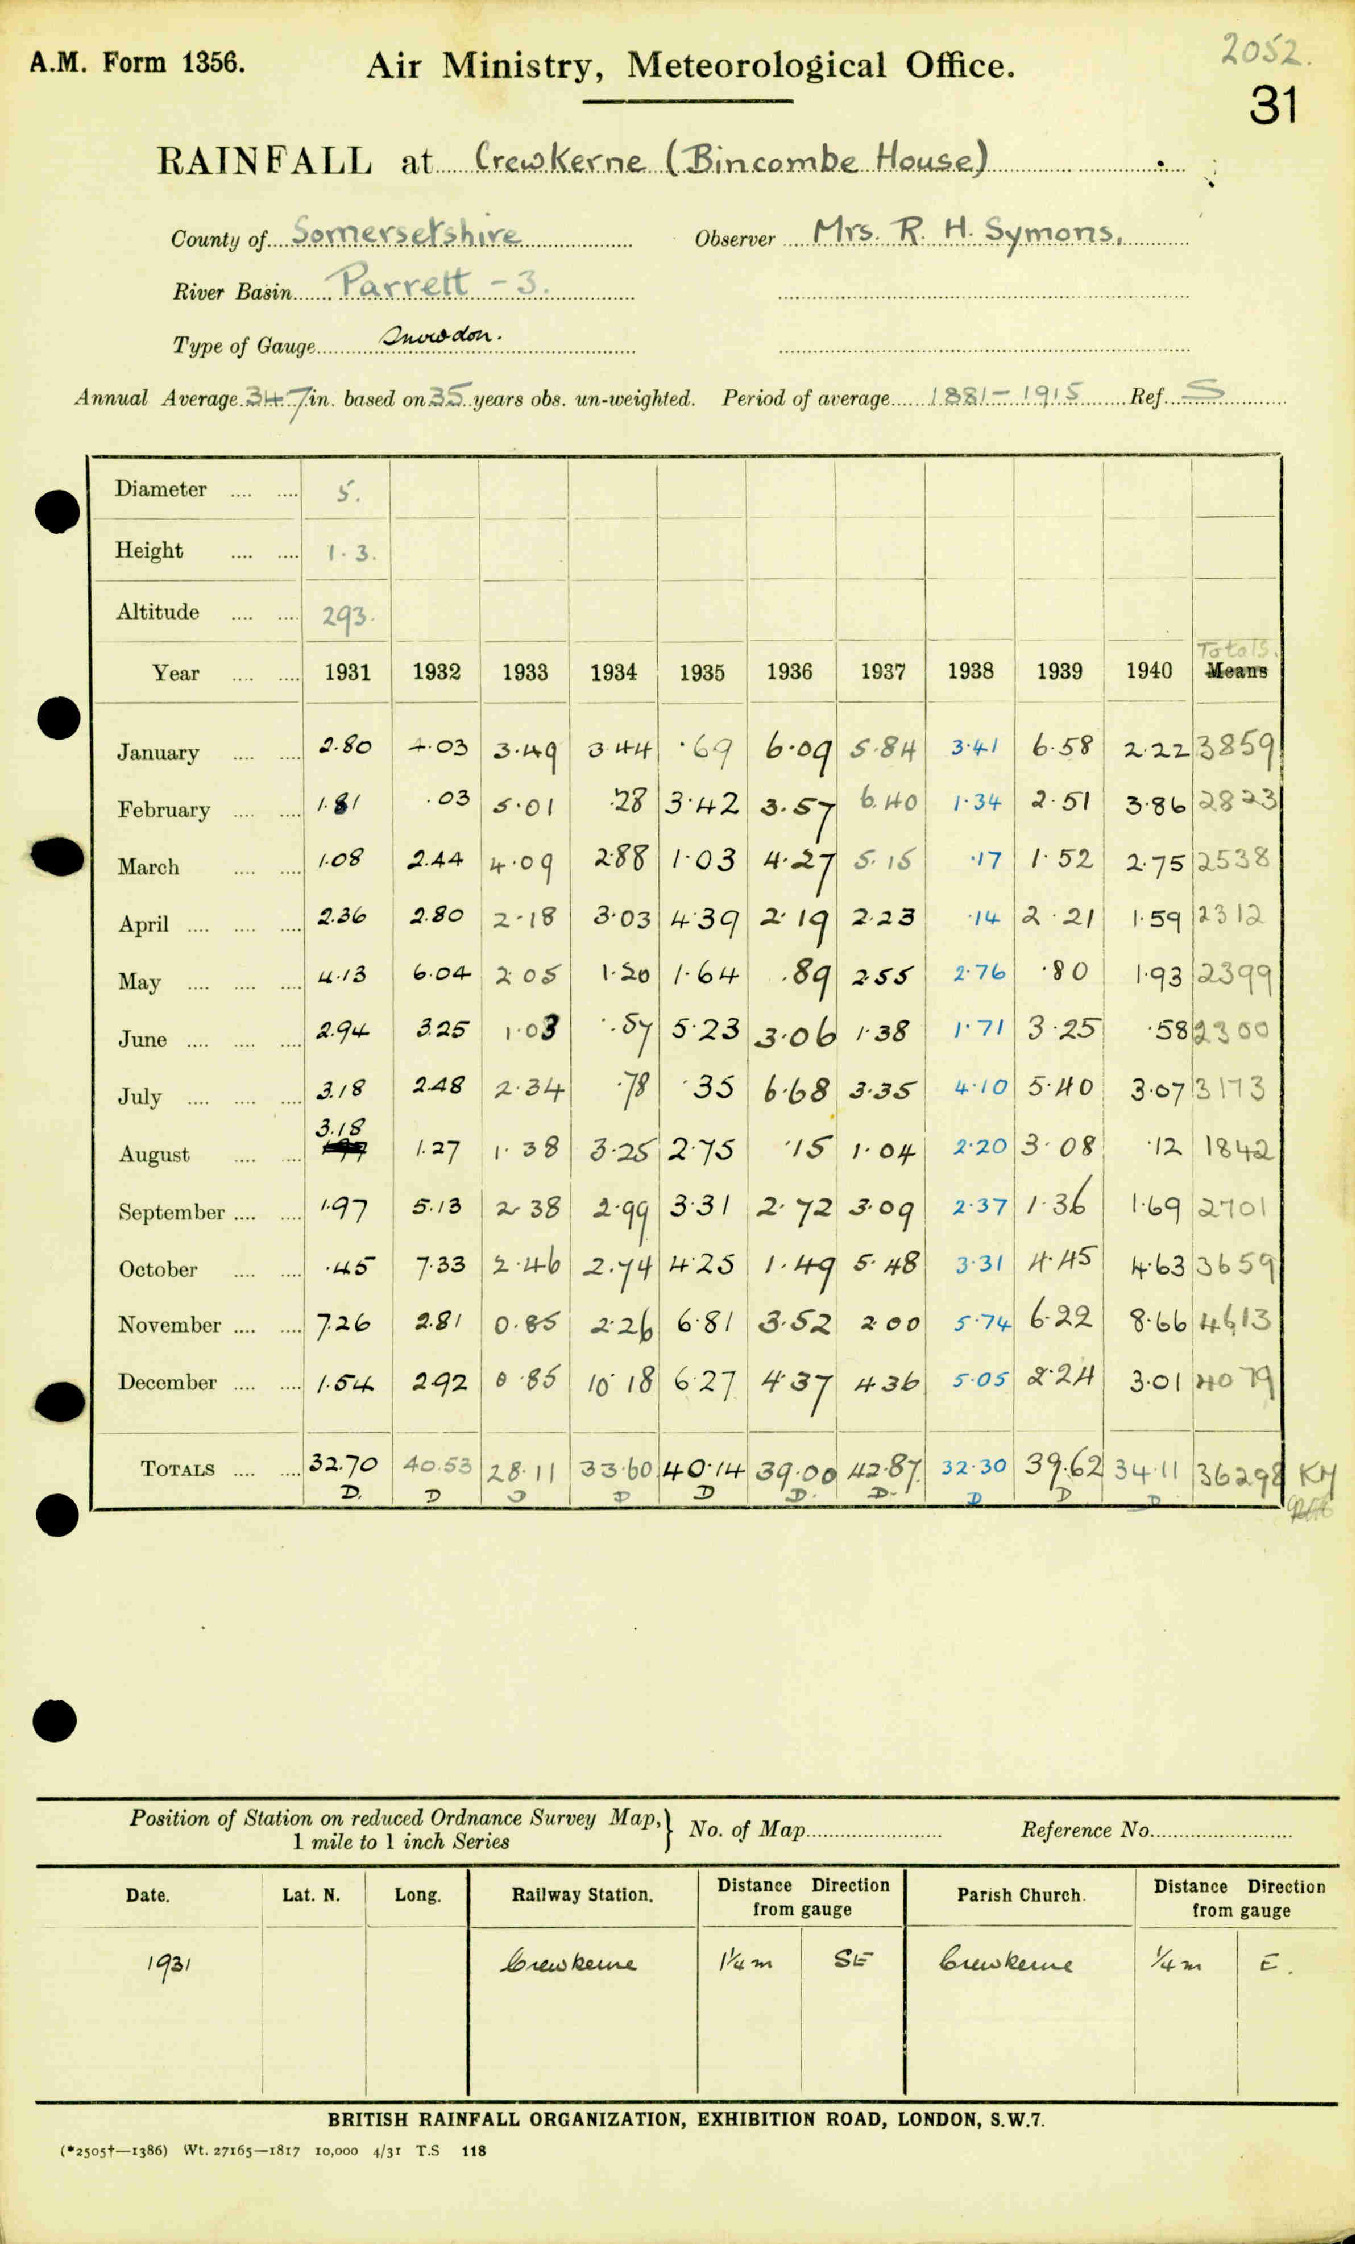 2052.
A.M. Form 1356. Air Ministry, Meteorological Office.
31
RAINFALL at Crewkerne (Bincombe House)
County of Somersetshire Observer Mrs. R. H. Symons,
River Basin Parrett - 3.
Type of Gauge Snowdon.
Annual Average 34.7 in. based on 35 years obs. un-weighted. Period of average 1881-1915 Ref. S
Diameter .... .... 5.
Height .... .... 1.3.
Altitude .... .... 293.
Totals.
Year .... .... 1931 1932 1933 1934 1935 1936 1937 1938 1939 1940 Means
January .... .... 2.80 4.03 3.49 3.44 .69 6.09 5.84 3.41 6.58 2.22 3859
February .... .... 1.81 .03 5.01 .28 3.42 3.57 6.40 1.34 2.51 3.86 2823
March .... .... 1.08 2.44 4.09 2.88 1.03 4.27 5.15 .17 1.52 2.75 2538
April .... .... .... 2.36 2.80 2.18 3.03 4.39 2.19 2.23 .14 2.21 1.59 2312
May .... .... .... 4.13 6.04 2.05 1.20 1.64 .89 2.55 2.76 .80 1.93 2399
June .... .... .... 2.94 3.25 1.03 .57 5.23 3.06 1.38 1.71 3.25 .58 2300
July .... .... .... 3.18 2.48 2.34 .78 .35 6.68 3.35 4.10 5.40 3.07 3173
3.18
August .... .... 1.97 1.27 1.38 3.25 2.75 .15 1.04 2.20 3.08 .12 1842
September .... .... 1.97 5.13 2.38 2.99 3.31 2.72 3.09 2.37 1.36 1.69 2701
October .... .... .45 7.33 2.46 2.74 4.25 1.49 5.48 3.31 4.45 4.63 3659
November .... .... 7.26 2.81 0.85 2.26 6.81 3.52 2.00 5.74 6.22 8.66 4613
December .... .... 1.54 2.92 0.85 10.18 6.27 4.37 4.36 5.05 2.24 3.01 4079
TOTALS .... .... 32.70 40.53 28.11 33.60 40.14 39.00 42.87 32.30 39.62 34.11 36298 KM
D. D D D D D. D. D D D
Position of Station on reduced Ordnance Survey Map,} No. of Map Reference No.
1 mile to 1 inch Series
Date. Lat. N. Long. Railway Station. Distance Direction from gauge Parish Church. Distance Direction from gauge
1931 Crewkerne 1¼ m SE Crewkerne ¼ m E.
BRITISH RAINFALL ORGANIZATION, EXHIBITION ROAD, LONDON, S.W.7.
(*2505†—1386) Wt. 27165—1817 10,000 4/31 T.S 118